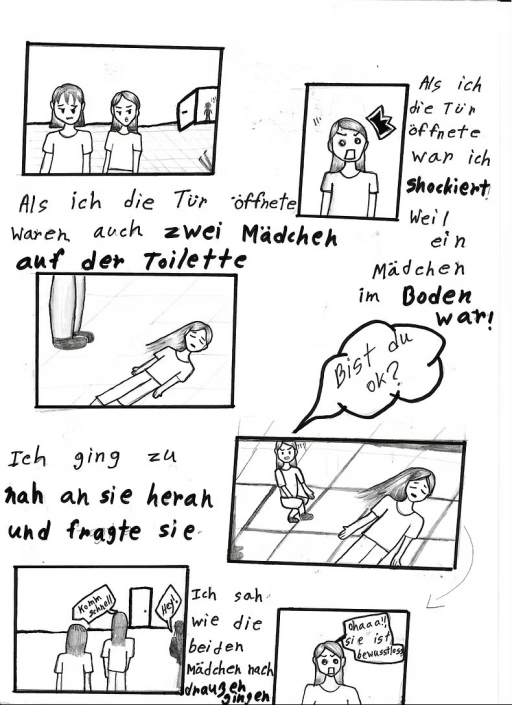 Als ich die Tür öffnete
waren auch zwei Mädchen
auf der Toilette
Als ich
die Tür
öffnete
war ich
shockiert
Weil
ein
Mädchen
im Boden
war!
Bist du
ok?
Ich ging zu
nah an sie heran
und fragte sie
Komm
schnell
Hey!
Ich sah
wie die
beiden
Mädchen nach
draugen
gingen
ohaaa!!
sie ist
bewusstlos